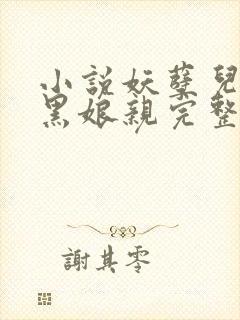 小說妖孽兒
黑娘親完整
謝其零